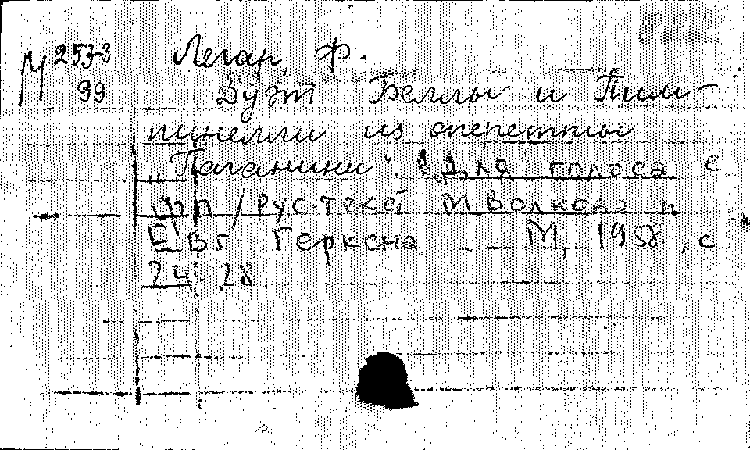 М 2533
99
Легар, Ф.
Дуэт Беллы и Пим-
пинелли из оперетты
"Паганини". Для голоса с
ф-п / Рус. текст М. Волкова и
Евг. Геркена. - М., 1958, с
24-28